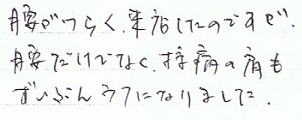 腰がつらく、来店したのですが、
腰だけでなく、持病の肩も
ずいぶんラクになりました。